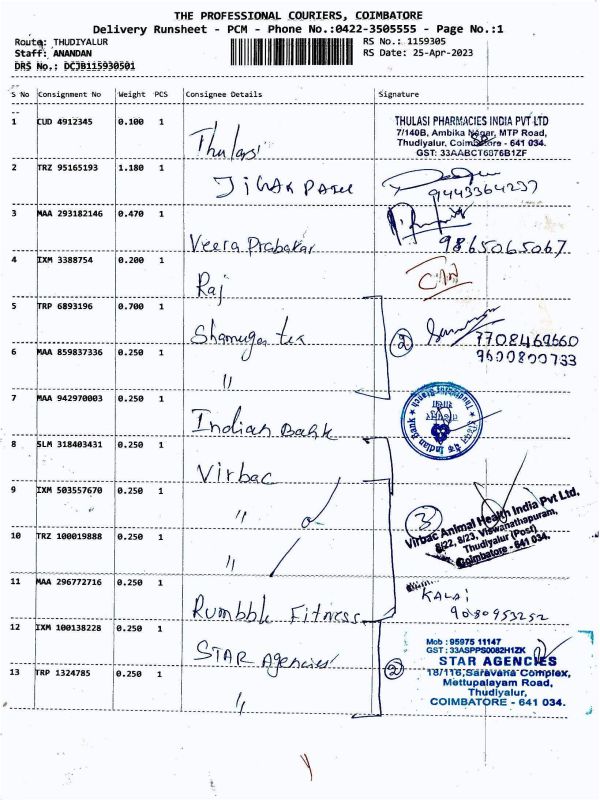 THE PROFESSIONAL COURIERS, COIMBATORE
Delivery Runsheet - PCM - Phone No.:0422-3505555 - Page No.:1
Route: THUDIYALUR RS No.: 1159305
Staff: ANANDAN RS Date: 25-Apr-2023
DRS No.: DCJB115930501
S No Consignment No Weight PCS Consignee Details Signature
1 CUD 4912345 0.100 1 Thulasi
THULASI PHARMACIES INDIA PVT LTD
7/140B, Ambika Nagar, MTP Road,
Thudiyalur, Coimbatore - 641 034.
GST: 33AABCT6876B1ZF
2 TRZ 95165193 1.180 1
9443364237
3 MAA 293182146 0.470 1 Veera Prabakar
9865065067
4 IXM 3388754 0.200 1 Raj
5 TRP 6893196 0.700 1 Shamuga tex 2 7708469660
9600800733
6 MAA 859837336 0.250 1 "
7 MAA 942970003 0.250 1 Indian Bank
Indian Bank
8 SLM 318403431 0.250 1 Virbac
9 IXM 503557670 0.250 1 " 3
Virbac Animal Health India Pvt Ltd,
8/22, 8/23, Viswanathapuram,
Thudiyalur (Post)
Coimbatore - 641 034.
10 TRZ 100019888 0.250 1 "
11 MAA 296772716 0.250 1 Rumbble Fitness
KALAI
9080953252
12 IXM 100138228 0.250 1 STAR Agencies 2
Mob : 95975 11147
GST : 33ASPPS0082H1ZK
STAR AGENCIES
18/116, Saravana Complex,
Mettupalayam Road,
Thudiyalur,
COIMBATORE - 641 034.
13 TRP 1324785 0.250 1 "